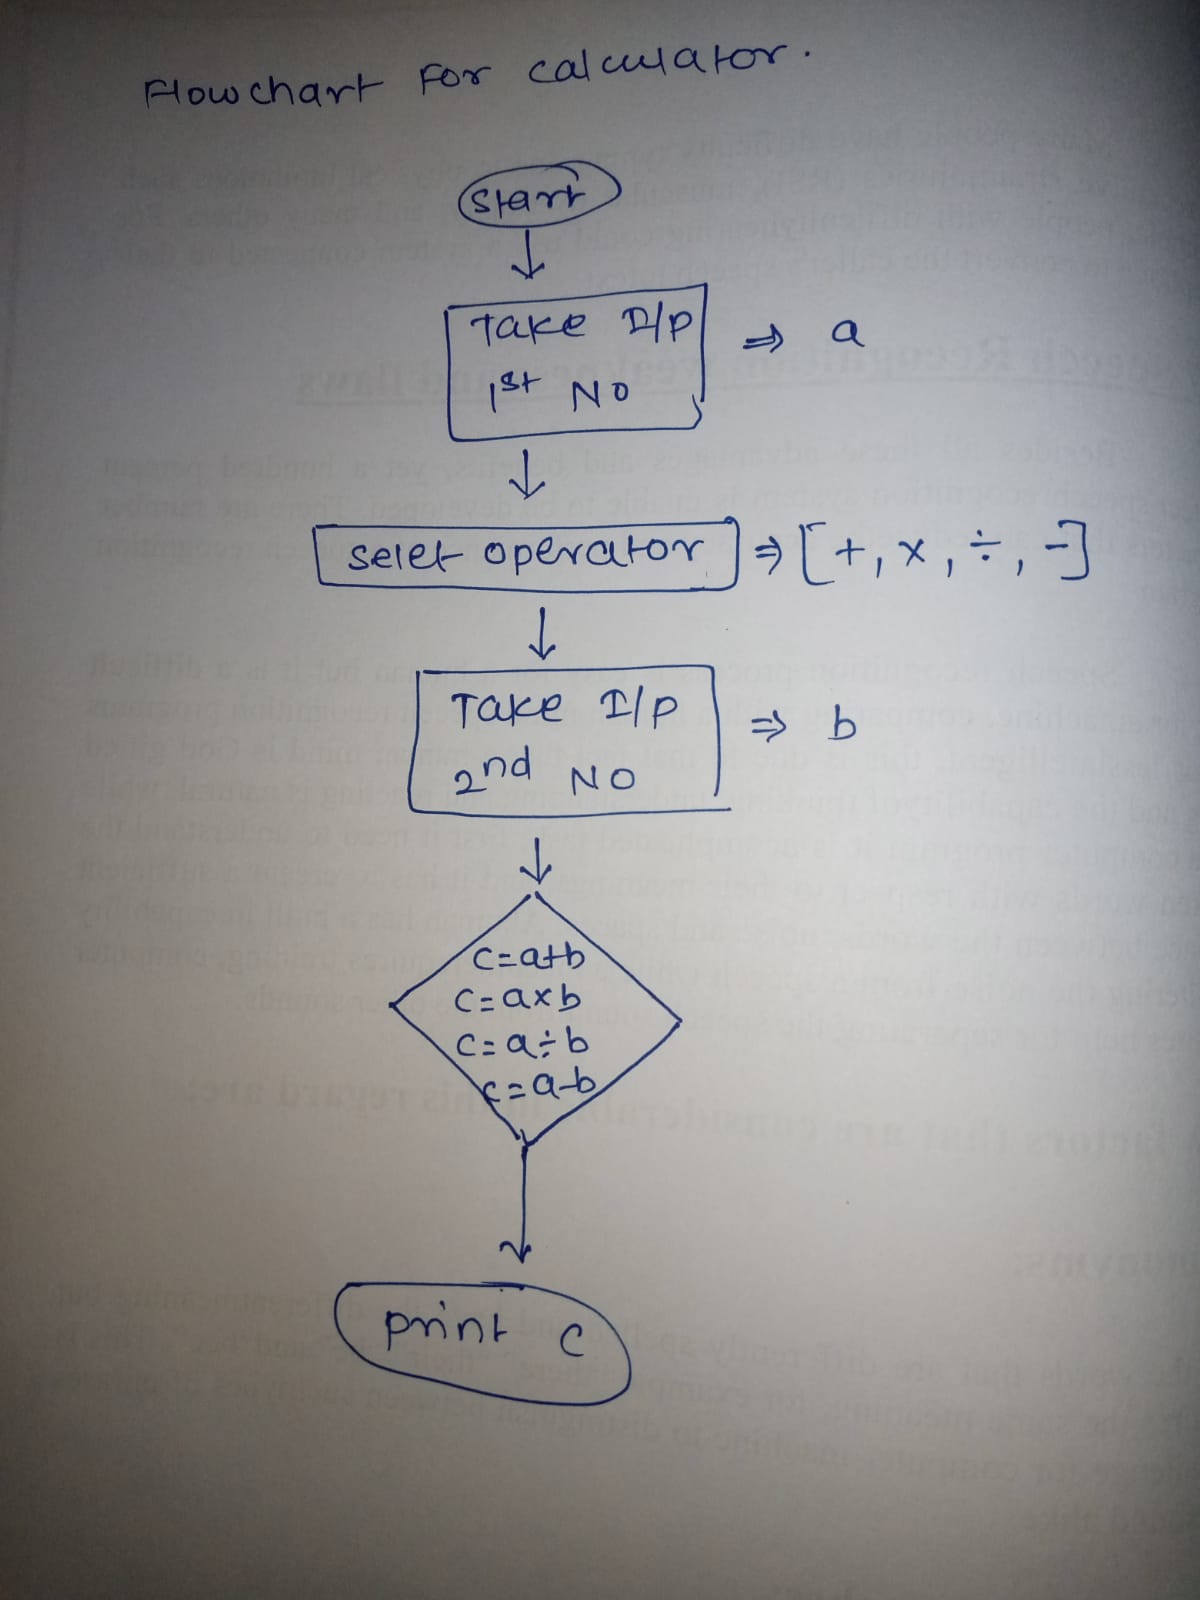 Flowchart For calculator.
Start
Take I/P ⇒ a
1st NO
selet operator ⇒ [+, ×, ÷, -]
Take I/P ⇒ b
2nd NO
c=a+b
c=a×b
c=a÷b
c=a-b
print c